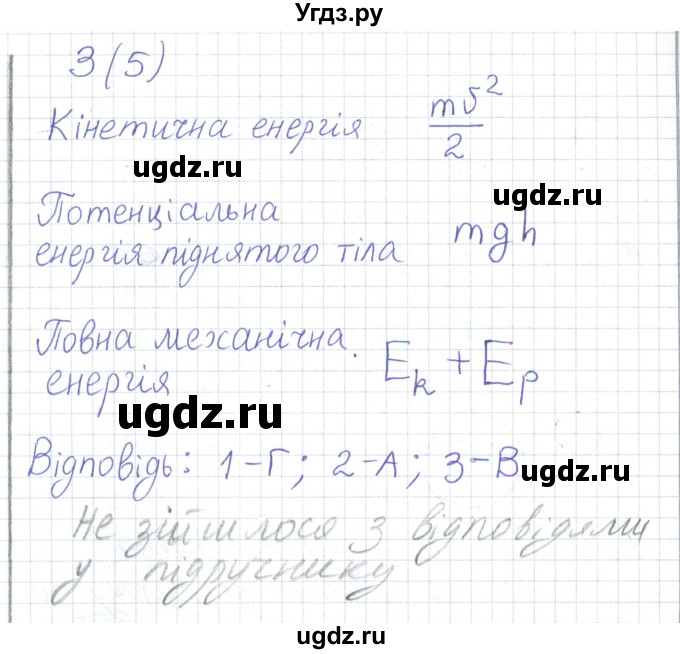 Угдз.ру
3(5)
Кінетична енергія mυ²/2
ugdz.ru ugdz.ru
Потенціальна
енергія піднятого тіла mgh
ugdz.ru
Повна механічна
енергія Eₖ + Eₚ
ugdz.ru
Відповідь: 1-Г; 2-А; 3-В
ugdz.ru
Не зійшлося з відповідями
у підручнику
ugdz.ru
ugdz.ru